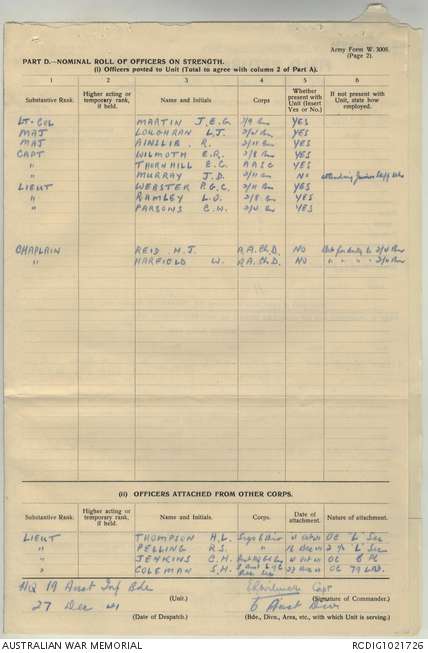 Army Form W. 3008.
(Page 2).
PART D.—NOMINAL ROLL OF OFFICERS ON STRENGTH.
(i) Officers posted to Unit (Total to agree with column 2 of Part A).
Substantive Rank. Higher acting or temporary rank, if held. Name and Initials Corps Whether present with Unit (Insert Yes or No.) If not present with Unit, state how employed.
1 2 3 4 5 6
LT-COL MARTIN J.E.G. 2/9 Bn YES
MAJ LOUGHRAN L.J. YES
MAJ AINSLIE R. 2/11 Bn YES
CAPT WILMOTH E.R. 2/8 Bn YES
" THORNHILL E.C. AASC YES
" MURRAY J.D. 2/11 Bn NO attending Junior Staff
LIEUT WEBSTER P.G.C. YES
" RAMLEY L.O. 2/8 Bn YES
" PARSONS C.W. YES
CHAPLAIN REID H.J. A.A.Ch.D. NO Bn
" HARFIELD W. A.A.Ch.D. NO " " " 2/11 Bn
(ii) OFFICERS ATTACHED FROM OTHER CORPS.
Substantive Rank. Higher acting or temporary rank, if held. Name and Initials. Corps. Date of attachment. Nature of attachment.
LIEUT THOMPSON H.L. Sigs OC "L" Sec
" PELLING R.S. " 2 i/c "L" Sec
" JENKINS C.H. OC Pl
" COLEMAN S.H. OC 79 LAD.
HQ 19 Aust Inf Bde (Unit.) Capt (Signature of Commander.)
27 Dec 41 (Date of Despatch.) 6 Aust Div (Bde., Divn., Area, etc., with which Unit is serving.)
AUSTRALIAN WAR MEMORIAL RCDIG1021726